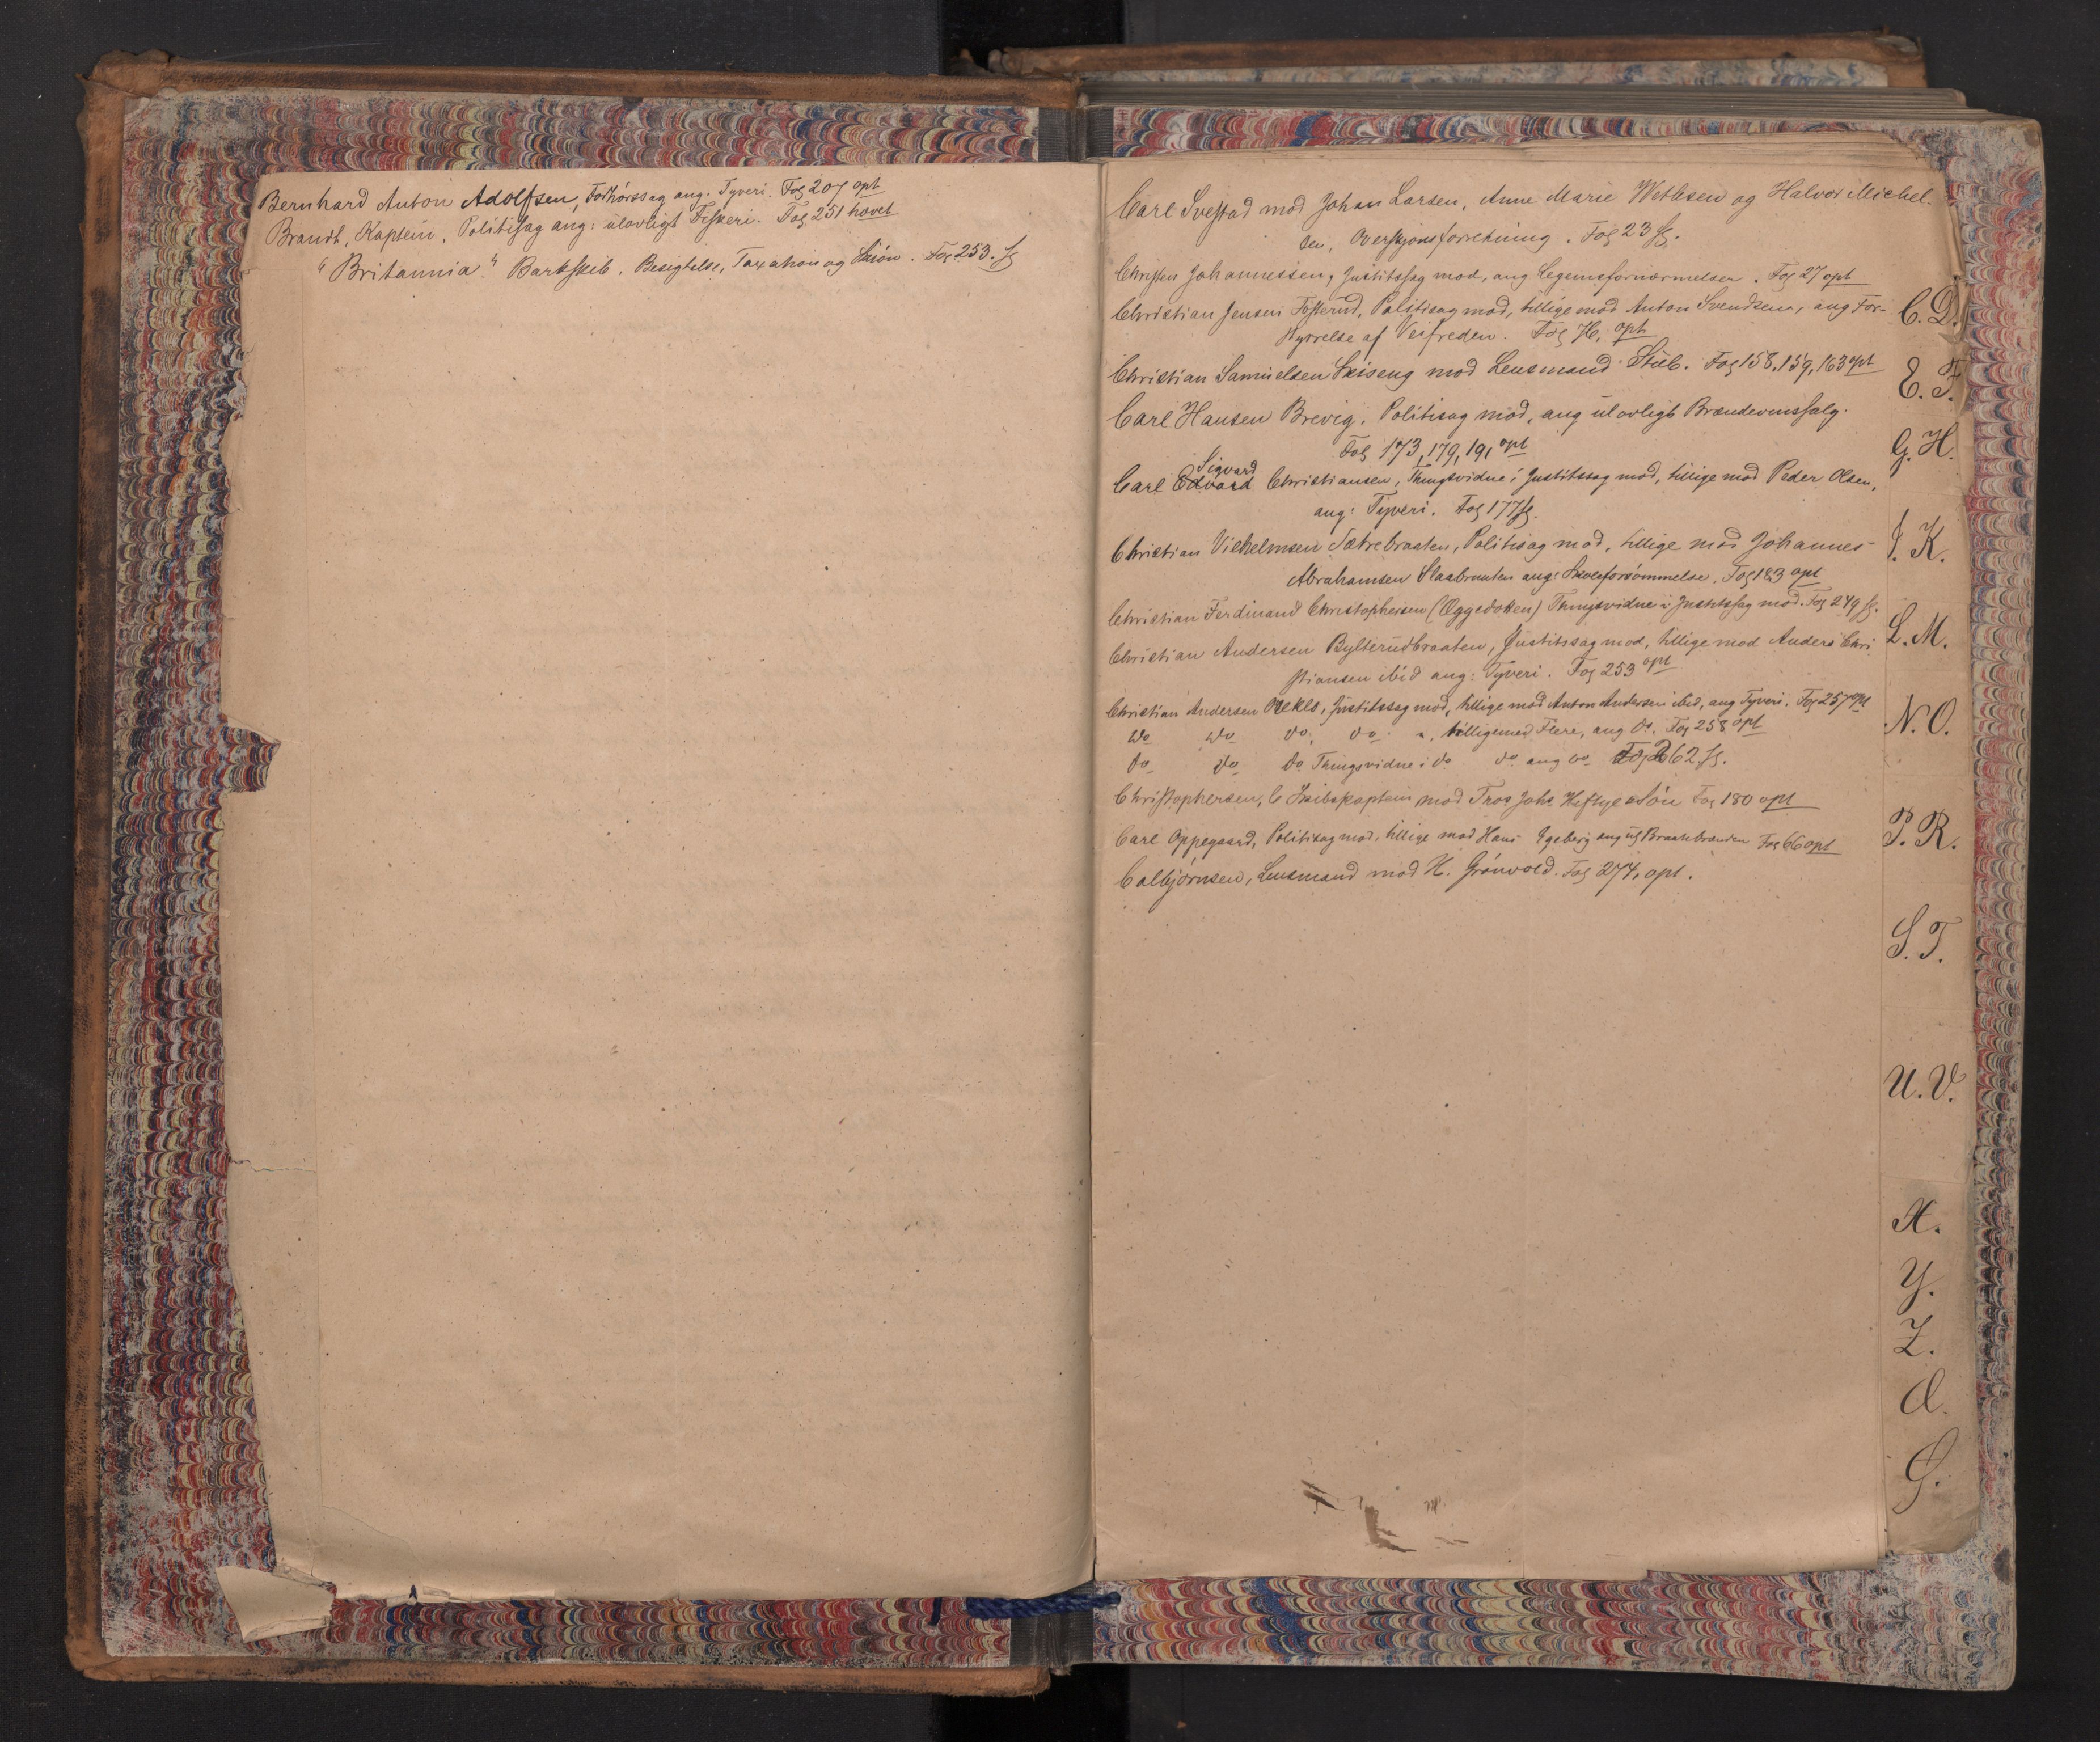 Bernhard Anton Adolfsen, Forhørssag ang. Tyveri. Fol 207 opt
Brandt, Kaptein, Politisag ang: ulovligt Fiskeri. Fol 251 hævet
"Britannia." Barkskib. Besigtelse, Taxation og Skjøn. Fol 253. fg
Carl Svestad mod Johan Larsen, Anne Marie Wetlesen og Halvor Michel-
sen, Overskjønsforretning. Fol 23 fg.
Christen Johannessen, Justitssag mod, ang Legemsfornærmelser. Fol 27 opt
Christian Jensen Fosterud, Politisag mod, tillige mod Anton Svendsen, ang For-
styrrelse af Veifreden. Fol 76, opt
Christian Samuelsen Skiseng mod Lensmand Stub. Fol 158, 159, 163 opt
Carl Hansen Brevig, Politisag mod, ang ulovligt Brændevinssalg.
Fol 173, 179, 191 opt
Sigvard
Carl Edvard Christiansen, Thingsvidne i Justitssag mod, tillige mod Peder Olsen,
ang: Tyveri. Fol 177 fg.
Christian Vilhelmsen Sætrebraaten, Politisag mod, tillige mod Johannes
Abrahamsen Slaabraaten ang: Skoleforsømmelse. Fol 183 opt
Christian Ferdinand Christophersen (Æggedoken) Thingsvidne i Justitssag mod. Fol 249 fg.
Christian Andersen Bylterudbraaten, Justitssag mod, tillige mod Anders Chri
stiansen ibid ang: Tyveri. Fol 253 opt
Christian Andersen Justitssag mod, tillige mod Anton Andersen ibid, ang Tyveri. Fol 257 opt
do do do do tilligemed Flere, ang do. Fol 258 opt
do do do Thingsvidne i do do ang do Fol 262 fg.
Christophersen, C Skibskaptein mod Thos Johs Heftye & Søn Fol 180 opt
Carl Oppegaard, Politisag mod, tillige mod Hans ang Fol 66 opt
Colbjørnsen, Lensmand mod H. Grønvold. Fol 274, opt.
C. D.
E. F.
G. H.
I. K.
L. M.
N. O.
P. R.
S. T.
U. V.
X.
Y.
Z.
Æ.
Ø.